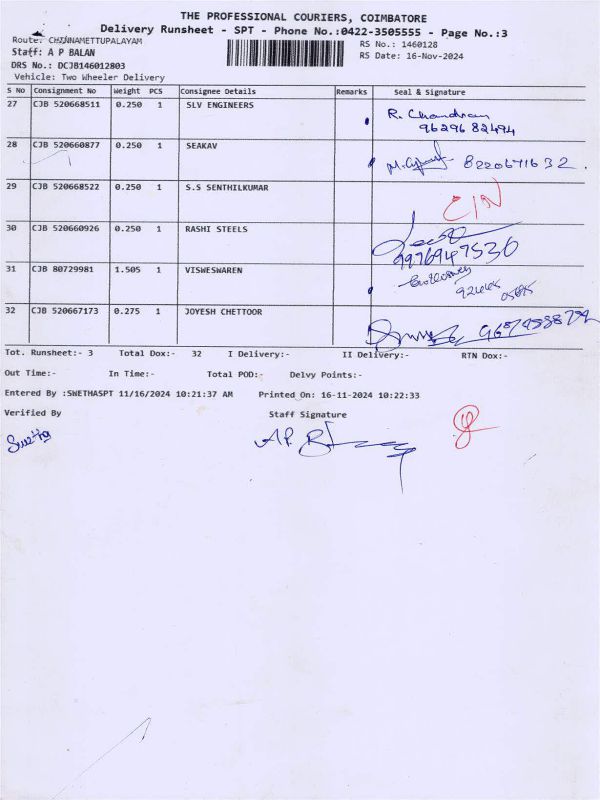 THE PROFESSIONAL COURIERS, COIMBATORE
Delivery Runsheet - SPT - Phone No.:0422-3505555 - Page No.:3
Route: CHINNAMETTUPALAYAM RS No.: 1460128
Staff: A P BALAN RS Date: 16-Nov-2024
DRS No.: DCJB146012803
Vehicle: Two Wheeler Delivery
S No Consignment No Weight PCS Consignee Details Remarks Seal & Signature
27 CJB 520668511 0.250 1 SLV ENGINEERS R. Chandran
9629682494
28 CJB 520660877 0.250 1 SEAKAV 8220671632
29 CJB 520668522 0.250 1 S.S SENTHILKUMAR
30 CJB 520660926 0.250 1 RASHI STEELS
9976947530
31 CJB 80729981 1.505 1 VISWESWAREN
32 CJB 520667173 0.275 1 JOYESH CHETTOOR
Tot. Runsheet:- 3 Total Dox:- 32 I Delivery:- II Delivery:- RTN Dox:-
Out Time:- In Time:- Total POD:- Delvy Points:-
Entered By :SWETHASPT 11/16/2024 10:21:37 AM Printed On: 16-11-2024 10:22:33
Verified By Staff Signature
A.P. B